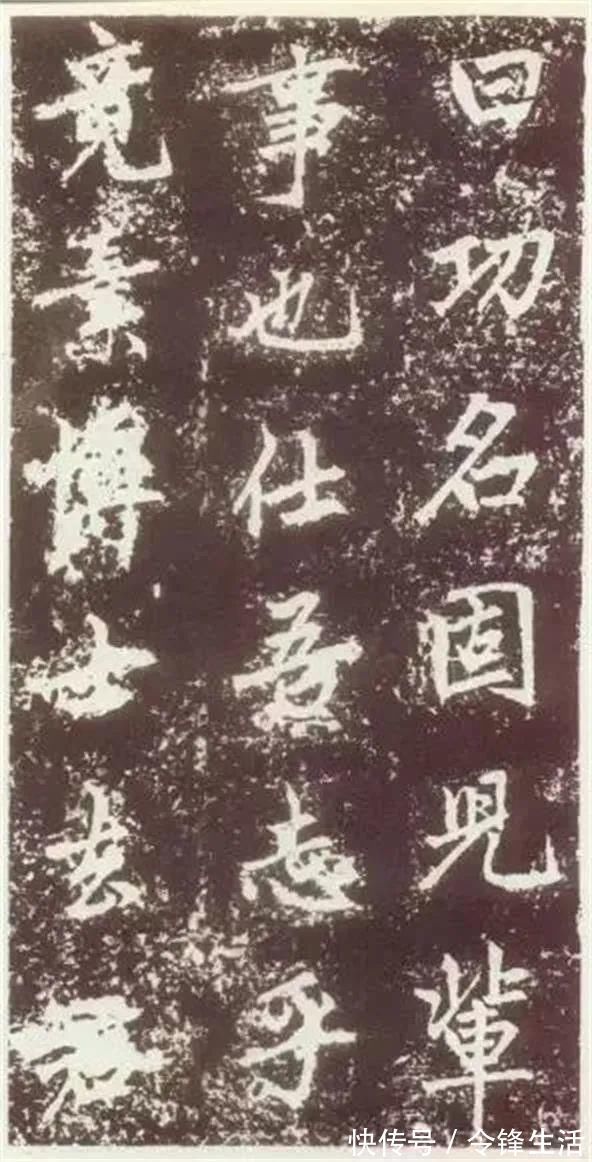 曰功名固兒輩
事也仕吾志乎
竟棄博士去君
快传号 / 令锋生活